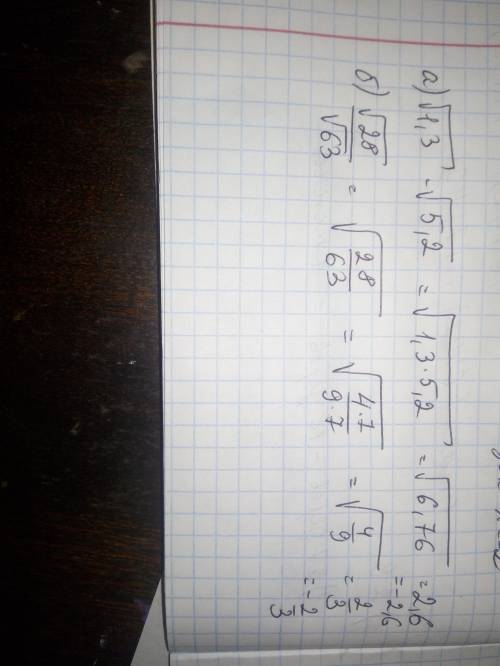 а) √1,3 · √5,2 = √1,3·5,2 = √6,76 = 2,6
= -2,6
б) √28/√63 = √28/63 = √4·7/9·7 = √4/9 = 2/3
= -2/3